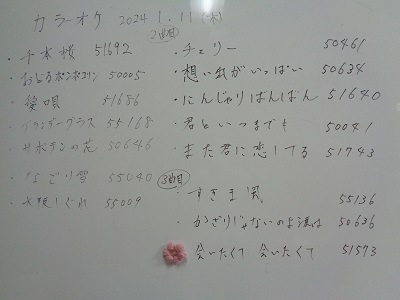 カラオケ 2024 1.11 (木)
千本桜 51692
・おどるポンポコリン 50005
・愛唄 51686
・イランデーグラス 55168
・サボテンの花 50646
・なごり雪 55040
・大阪しぐれ 55009
2曲目
・チェリー 50461
・想い出がいっぱい 50634
・にんじゃりばんばん 51640
・君といつまでも 50041
・また君に恋してる 51743
3曲目
・すきま風 55136
・かざりじゃないのよ涙は 50636
会いたくて 会いたくて 51573